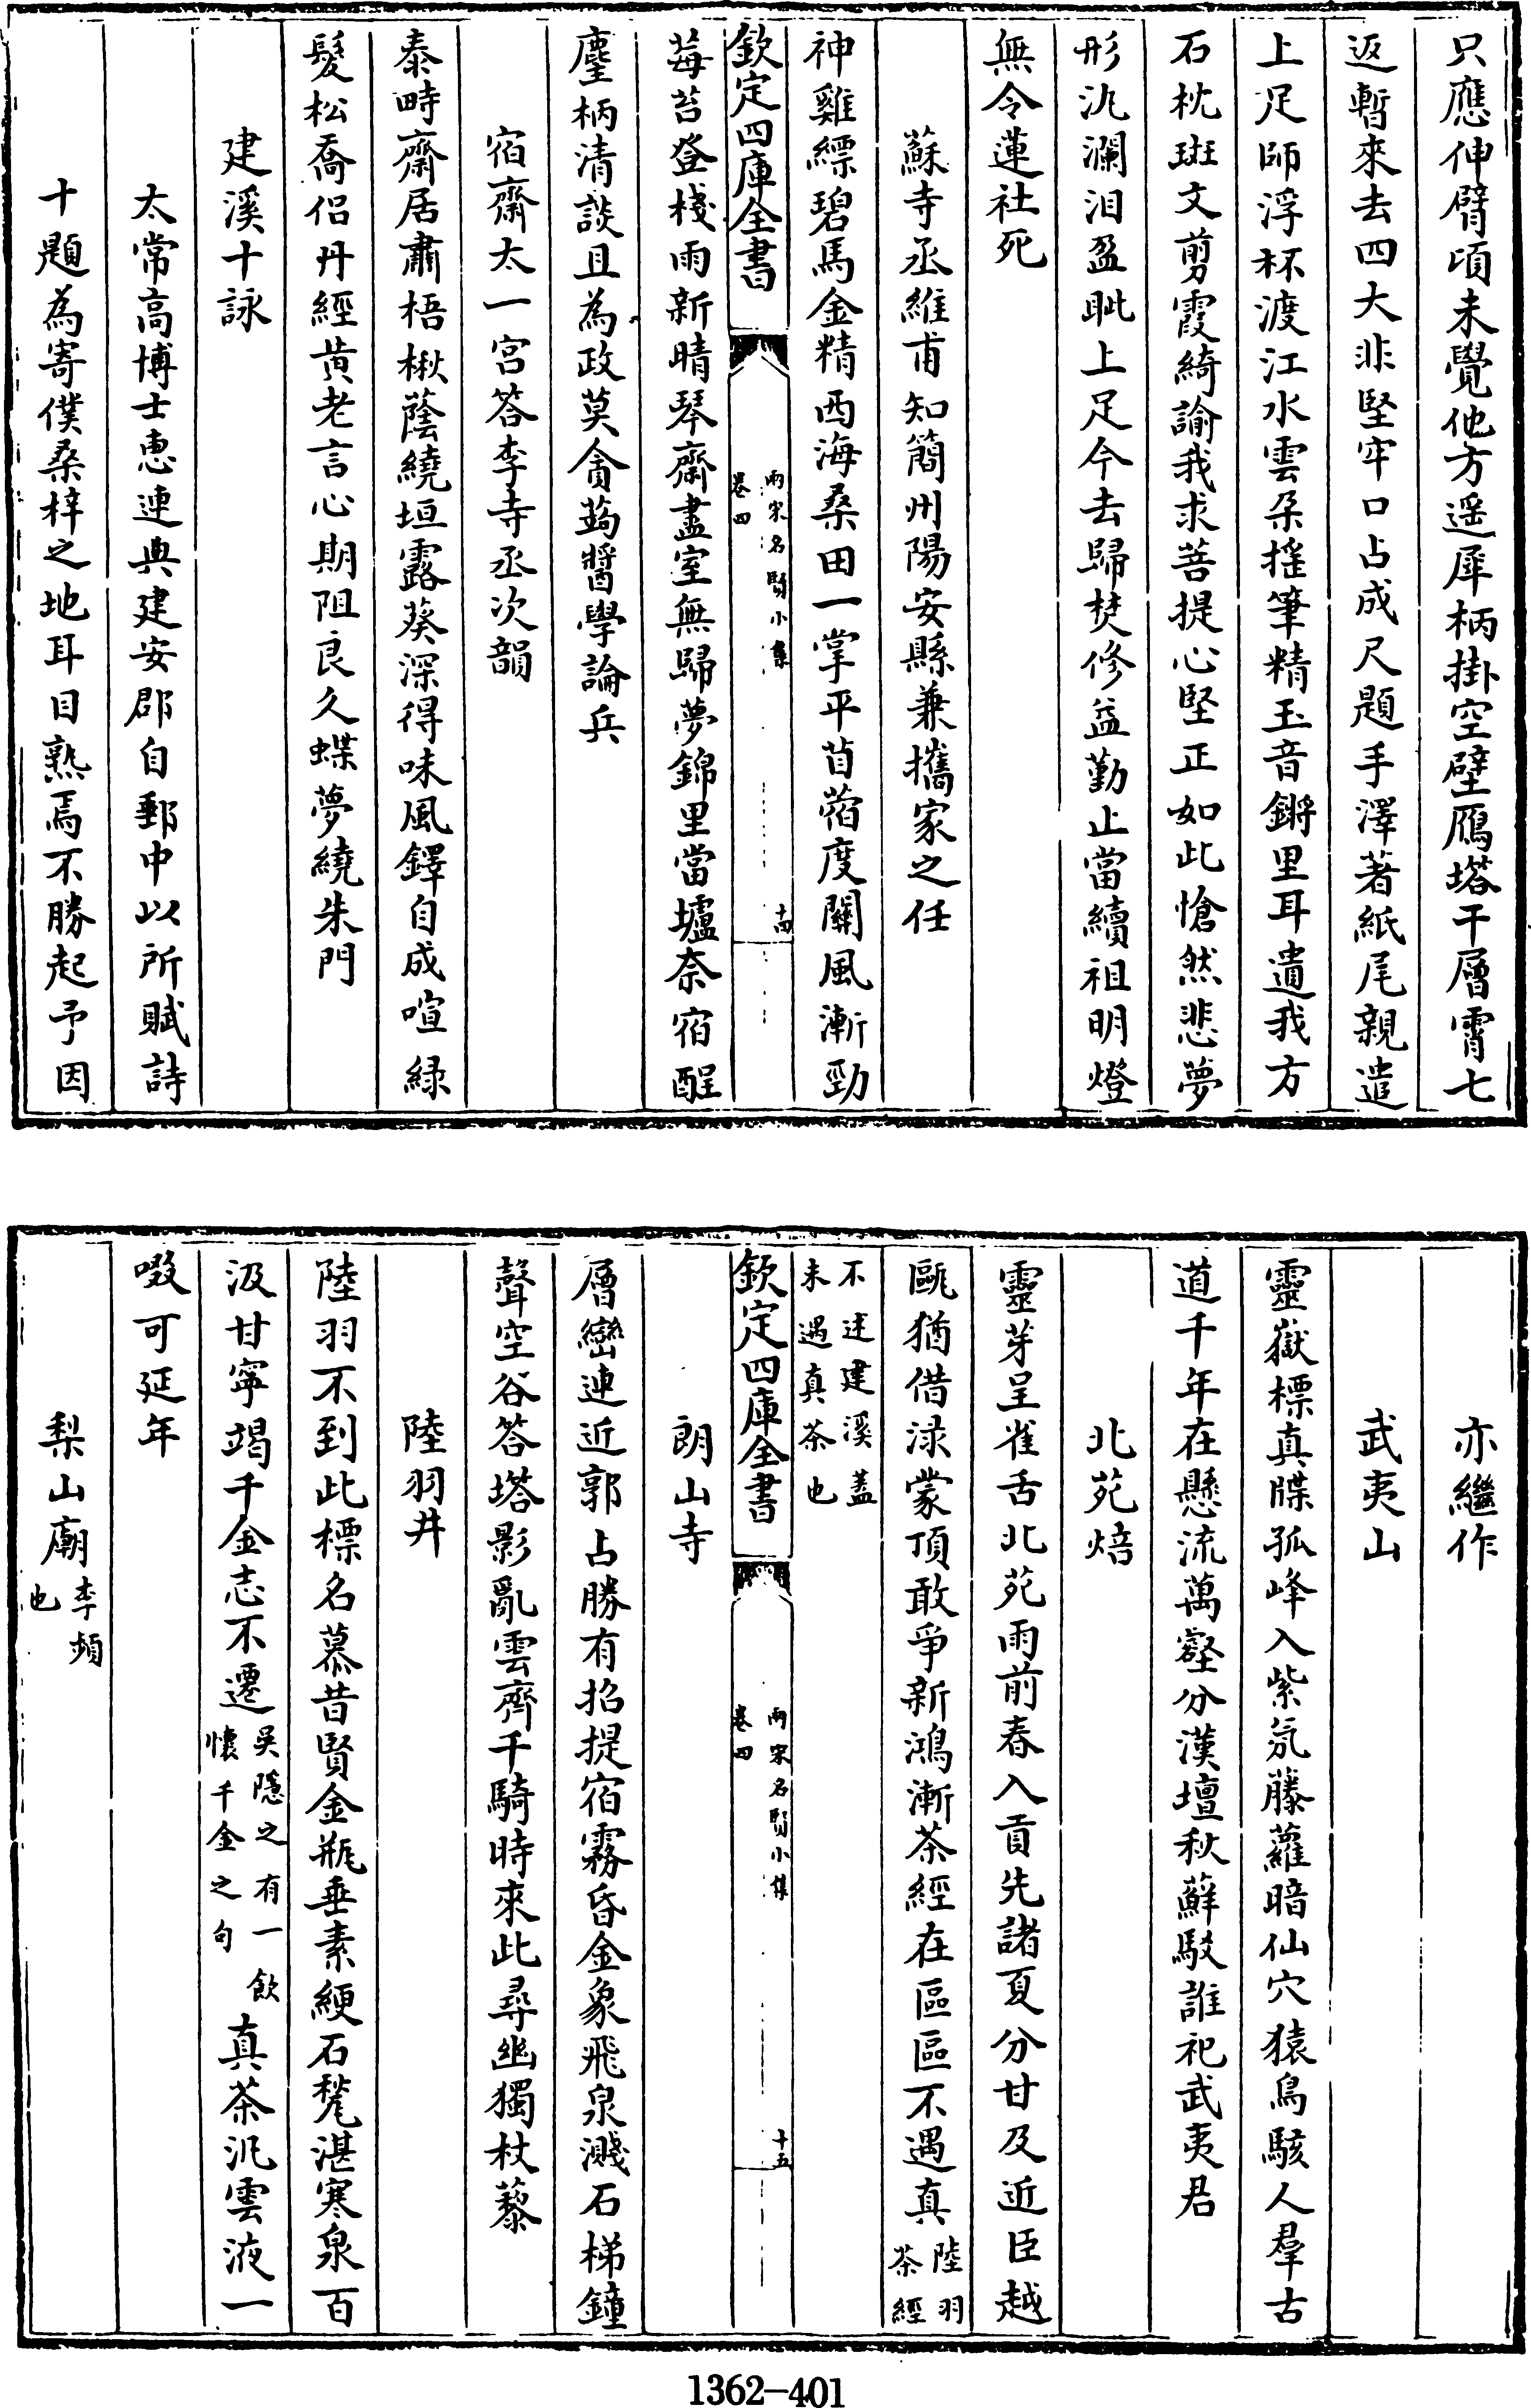 只應伸臂頃未覺他方遥犀柄掛空壁鴈塔干層霄七
返暫來去四大非堅牢口占成尺題手澤著紙尾親遣
上足師浮杯渡江水雲朶揺筆精玉音鏘里耳遺我方
石枕斑文剪霞綺諭我求菩提心堅正如此愴然悲夢
形汍瀾泪盈眦上足今去歸焚修益勤止當續祖明燈
無令蓮社死
蘇寺丞維甫知簡州陽安縣兼攜家之任
神雞縹碧馬金精西海桑田一掌平苜蓿度關風漸勁
欽定四庫全書
兩宋名賢小集
卷四
十四
莓苔登棧雨新晴琴齋盡室無歸夢錦里當壚奈宿酲
麈柄清談且為政莫貪蒟醬學論兵
宿齋太一宮答李寺丞次韻
泰畤齋居肅梧楸蔭繞垣露葵深得味風鐸自成喧緑
髮松喬侣丹經黄老言心期阻良久蝶夢繞朱門
建溪十詠
太常高博士惠連典建安郡自郵中以所賦詩
十題為寄僕桑梓之地耳目熟焉不勝起予因
亦繼作
武夷山
靈嶽標真牒孤峰入紫氛藤蘿暗仙穴猿鳥駭人羣古
道千年在懸流萬壑分漢壇秋蘚駁誰祀武夷君
北苑焙
靈芽呈雀舌北苑雨前春入貢先諸夏分甘及近臣越
甌猶借渌蒙頂敢爭新鴻漸茶經在區區不遇真陸羽茶經
不述建溪蓋未遇真茶也
欽定四庫全書
兩宋名賢小集
卷四
十五
朗山寺
層巒連近郭占勝有招提宿霧昏金象飛泉濺石梯鐘
聲空谷答塔影亂雲齊千騎時來此尋幽獨杖藜
陸羽井
陸羽不到此標名慕昔賢金瓶垂素綆石甃湛寒泉百
汲甘寧竭千金志不遷吳隱之有一飲懷千金之句真茶汎雲液一
啜可延年
梨山廟李頻也
1362-401